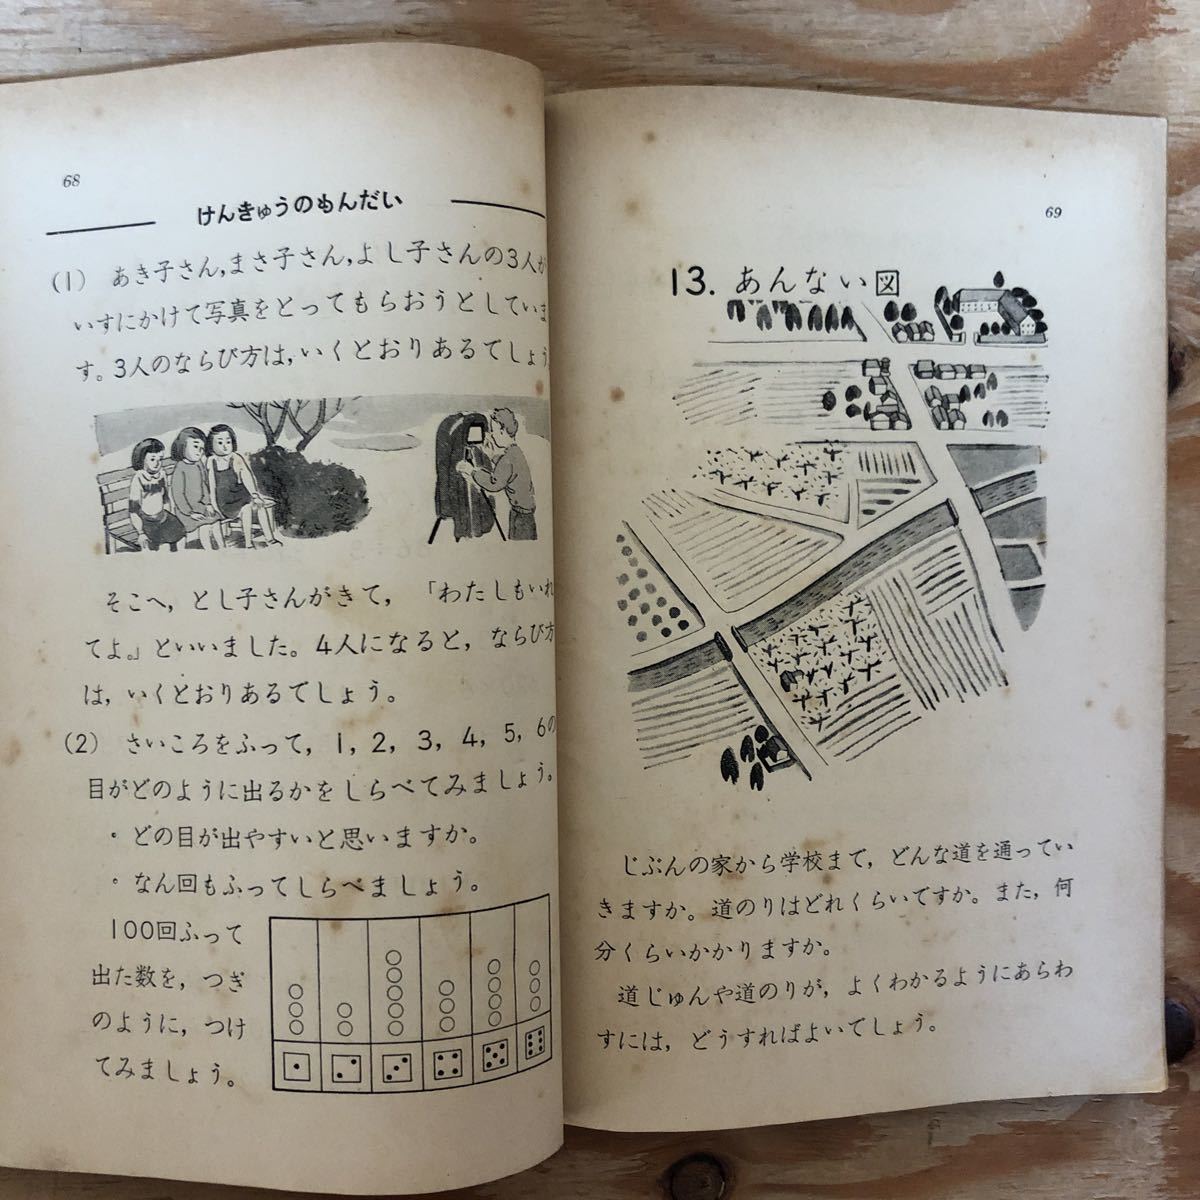 68
けんきゅうのもんだい
(1) あき子さん,まさ子さん,よし子さんの3人が
いすにかけて写真をとってもらおうとしていま
す。3人のならび方は,いくとおりあるでしょう
そこへ,とし子さんがきて,「わたしもいれ
てよ。」といいました。4人になると,ならび方
は,いくとおりあるでしょう。
(2) さいころをふって,1,2,3,4,5,6の
目がどのように出るかをしらべてみましょう。
・どの目が出やすいと思いますか。
・なん回もふってしらべましょう。
100回ふって
出た数を,つぎ
のように,つけ
てみましょう。
69
13. あんない図
じぶんの家から学校まで,どんな道を通ってい
きますか。道のりはどれくらいですか。また,何
分くらいかかりますか。
道じゅんや道のりが,よくわかるようにあらわ
すには,どうすればよいでしょう。